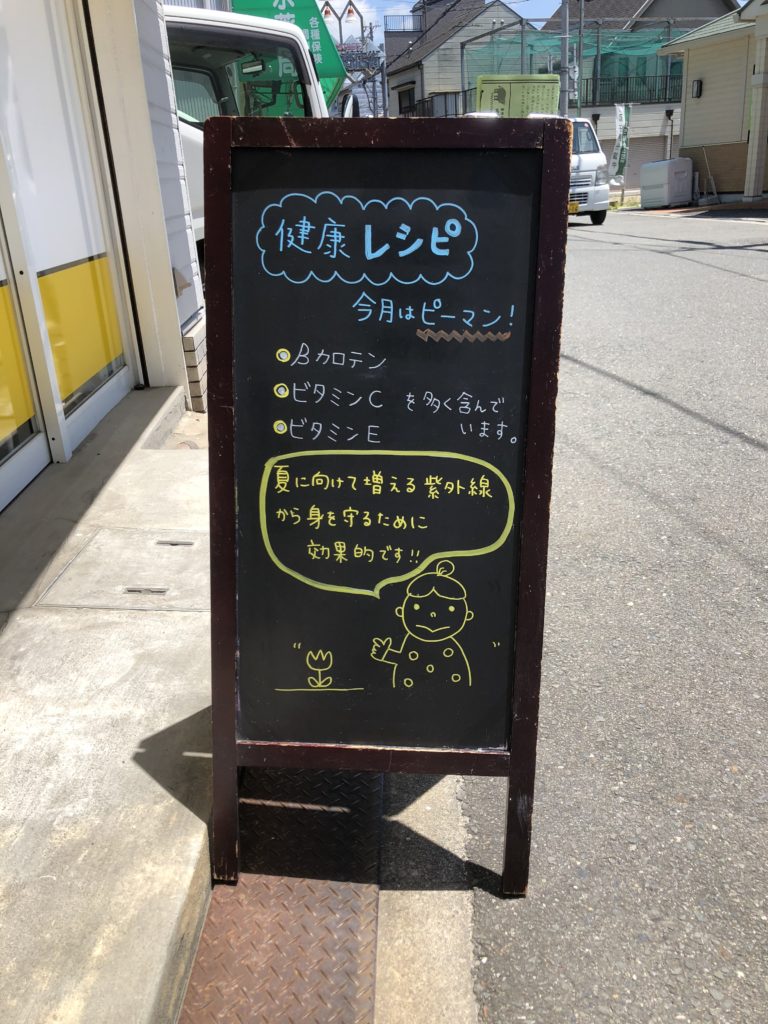 各種保険
健康レシピ
今月はピーマン!
βカロテン
ビタミンC を多く含んで
ビタミンE います。
夏に向けて増える紫外線
から身を守るために
効果的です!!